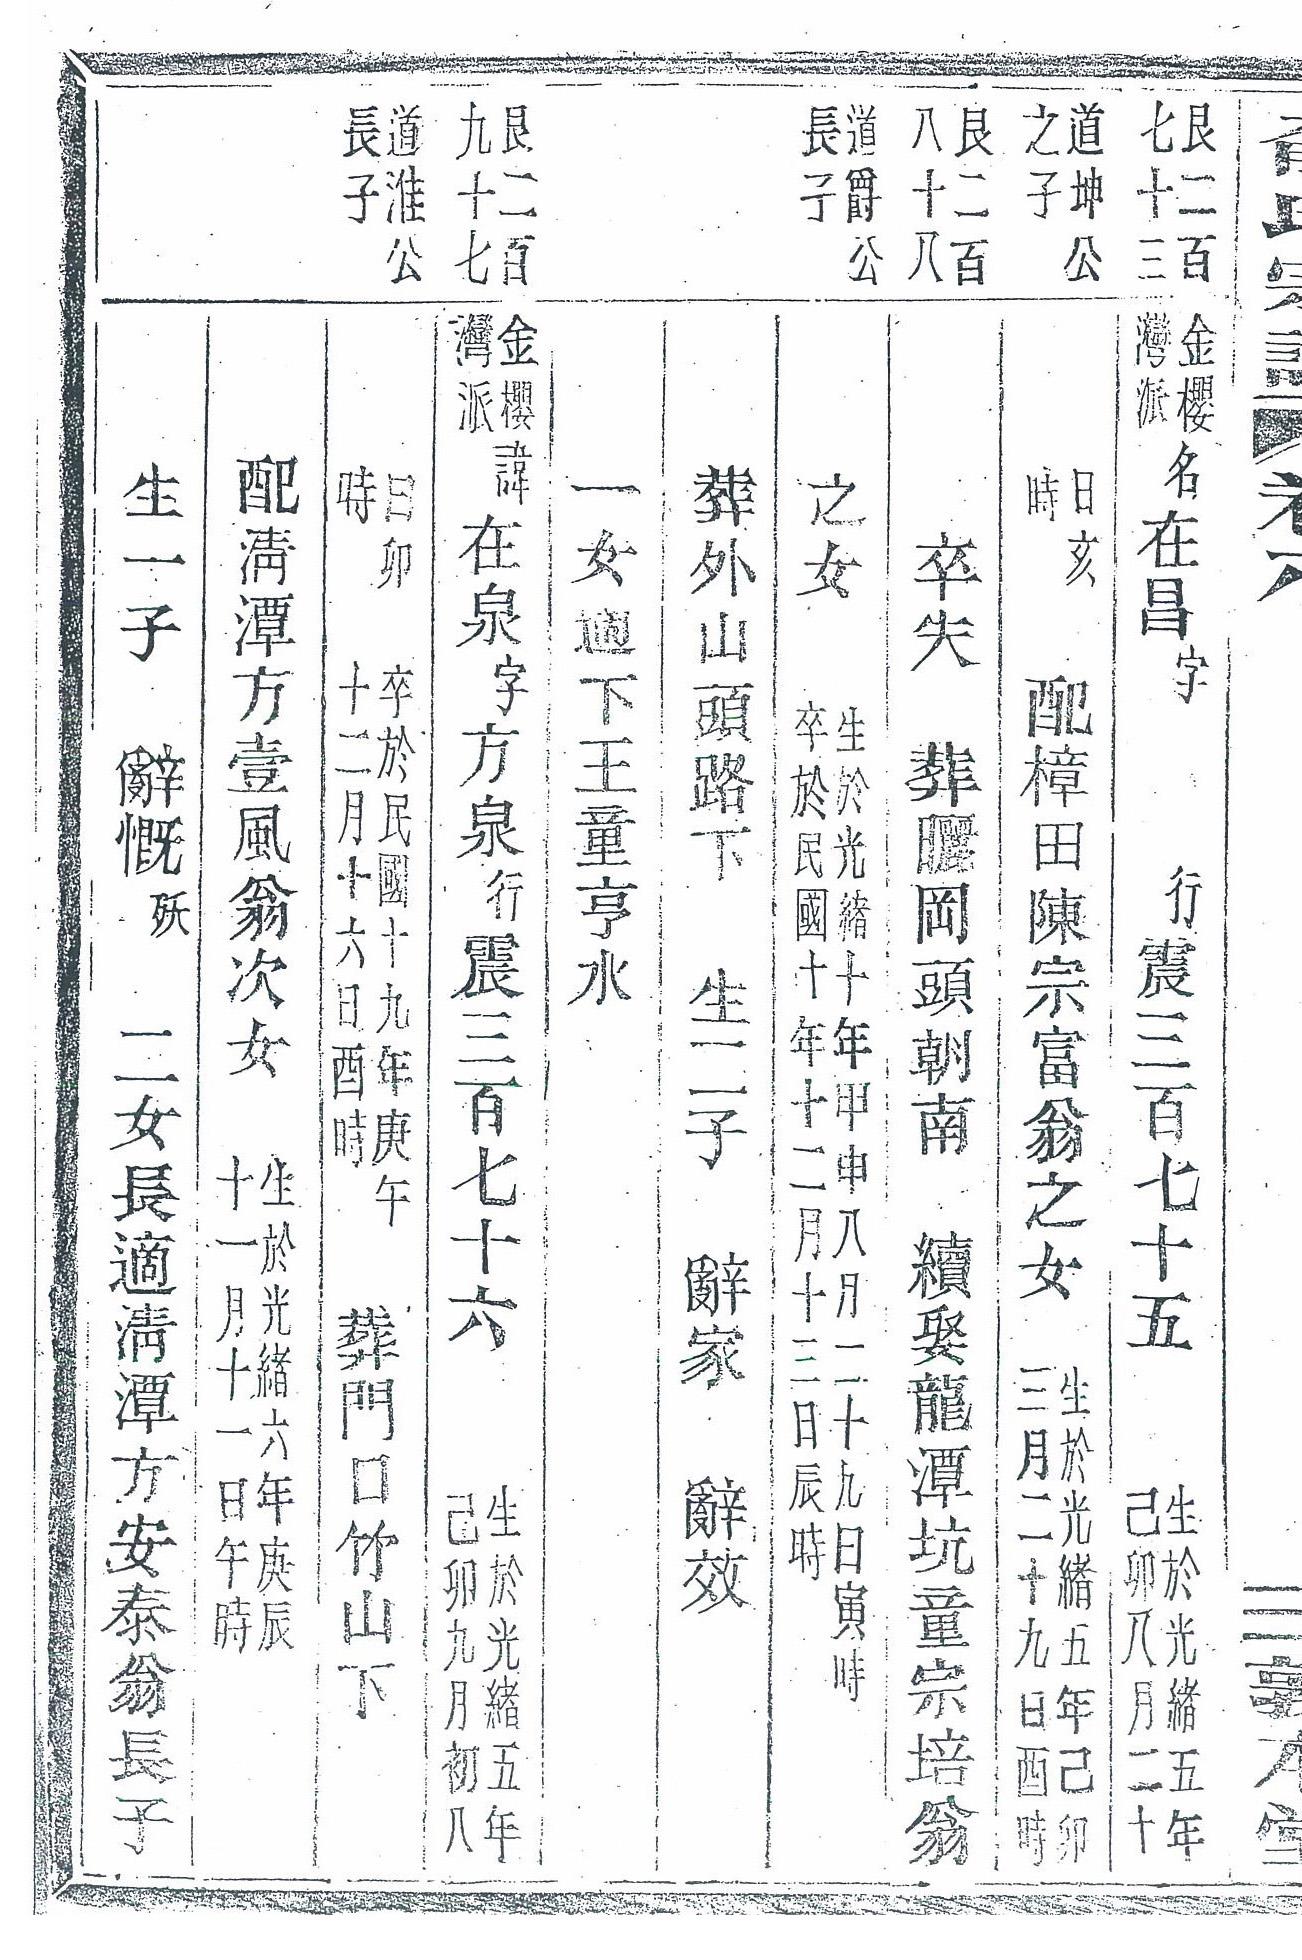 宗譜
卷六
三
敦本堂
艮二百
七十三
道坤公
之子
金櫻
灣派
名在昌字 行震三百七十五 生於光緒五年
己卯八月二十
日亥
時
配樟田陳宗富翁之女 生於光緒五年己卯
三月二十九日酉時
艮二百
八十八
道爵公
長子
卒失 葬曬岡頭朝南 續娶龍潭坑童宗培翁
之女 生於光緒十年甲申八月二十九日寅時
卒於民國十年十二月十三日辰時
葬外山頭路下 生二子 辭家 辭效
一女適下王童亨水
艮二百
九十七
道淮公
長子
金櫻
灣派
諱在泉字方泉行震三百七十六 生於光緒五年
己卯九月初八
日卯
時
卒於民國十九年庚午
十二月十六日酉時
葬門口竹山下
配淸潭方壹風翁次女 生於光緒六年庚辰
十一月十一日午時
生一子 辭慨殀 二女長適淸潭方安泰翁長子